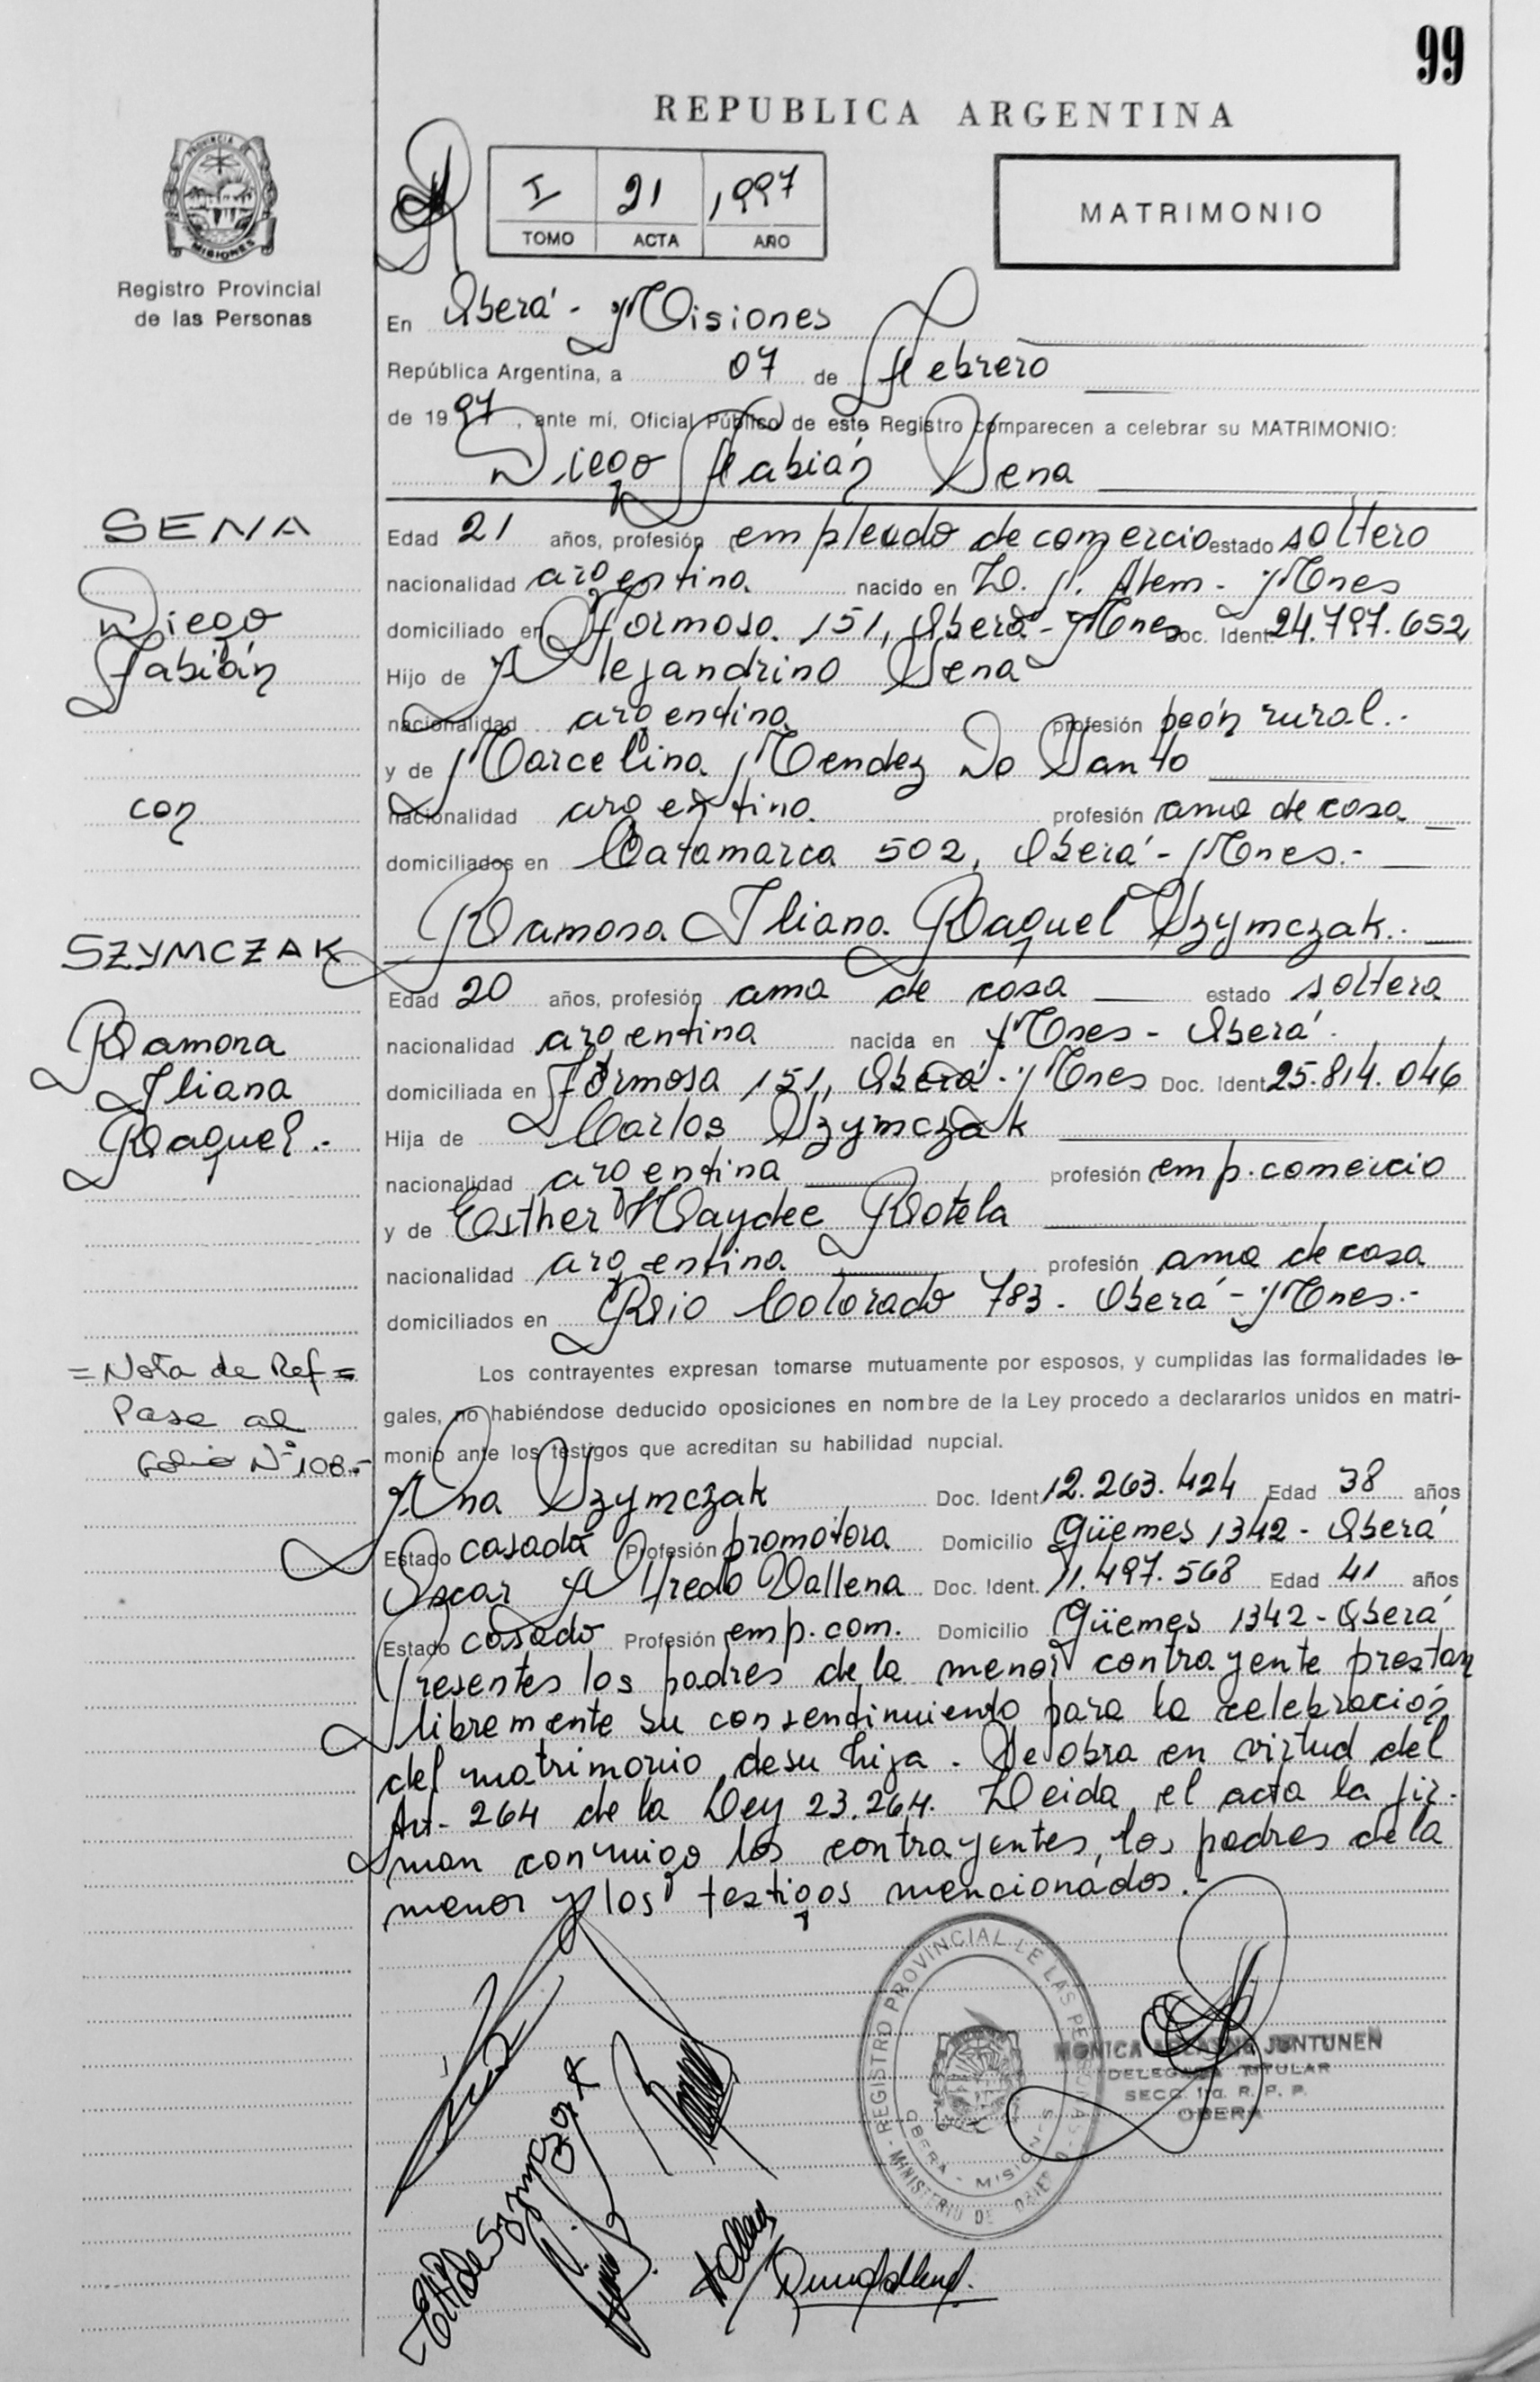 99
REPUBLICA ARGENTINA
PROVINCIA DE
MISIONES
Registro Provincial
de las Personas
I 21 1997
TOMO ACTA AÑO
MATRIMONIO
En Oberá - Misiones
República Argentina, a 07 de Febrero
de 1997, ante mí, Oficial Público de este Registro comparecen a celebrar su MATRIMONIO:
Diego Fabián Sena
SENA
Diego
Fabián
con
SZYMCZAK
Ramona
Iliana
Raquel.-
= Nota de Ref =
Pase al
Folio N° 108.-
Edad 21 años, profesión empleado de comercio estado soltero
nacionalidad argentina nacido en L. N. Alem - Mnes
domiciliado en Formosa 151, Oberá - Mnes Doc. Ident 24.797.652
Hijo de Alejandrino Sena
nacionalidad argentina profesión peón rural.-
y de Marcelina Mendez Do Santo
nacionalidad argentina profesión ama de casa
domiciliados en Catamarca 502, Oberá - Mnes.-
Ramona Iliana Raquel Szymczak.-
Edad 20 años, profesión ama de casa estado soltera
nacionalidad argentina nacida en Mnes - Oberá
domiciliada en Formosa 151, Oberá - Mnes Doc. Ident 25.814.046
Hija de Carlos Szymczak
nacionalidad argentina profesión emp. comercio
y de Esther Haydee Rotela
nacionalidad argentina profesión ama de casa
domiciliados en Rio Colorado 783 - Oberá - Mnes.-
Los contrayentes expresan tomarse mutuamente por esposos, y cumplidas las formalidades le-
gales, no habiéndose deducido oposiciones en nombre de la Ley procedo a declararlos unidos en matri-
monio ante los testigos que acreditan su habilidad nupcial.
Ana Szymczak Doc. Ident 12.263.424 Edad 38 años
Estado casada Profesión promotora Domicilio Güemes 1342 - Oberá
Oscar Alfredo Vallena Doc. Ident. 11.497.568 Edad 41 años
Estado casado Profesión emp. com. Domicilio Güemes 1342 - Oberá
Presentes los padres de la menor contrayente prestan
libremente su consentimiento para la celebración
del matrimonio de su hija. Se obra en virtud del
Art. 264 de la Ley 23.264. Leida el acta la fir-
man conmigo los contrayentes, los padres de la
menor y los testigos mencionados.-
REGISTRO PROVINCIAL DE LAS PERSONAS
OBERA - MISIONES
MINISTERIO DE
MONICA JUNTUNEN
DELEGADA TITULAR
SECC. 1ra. R. P. P.
OBERA
Szymczak